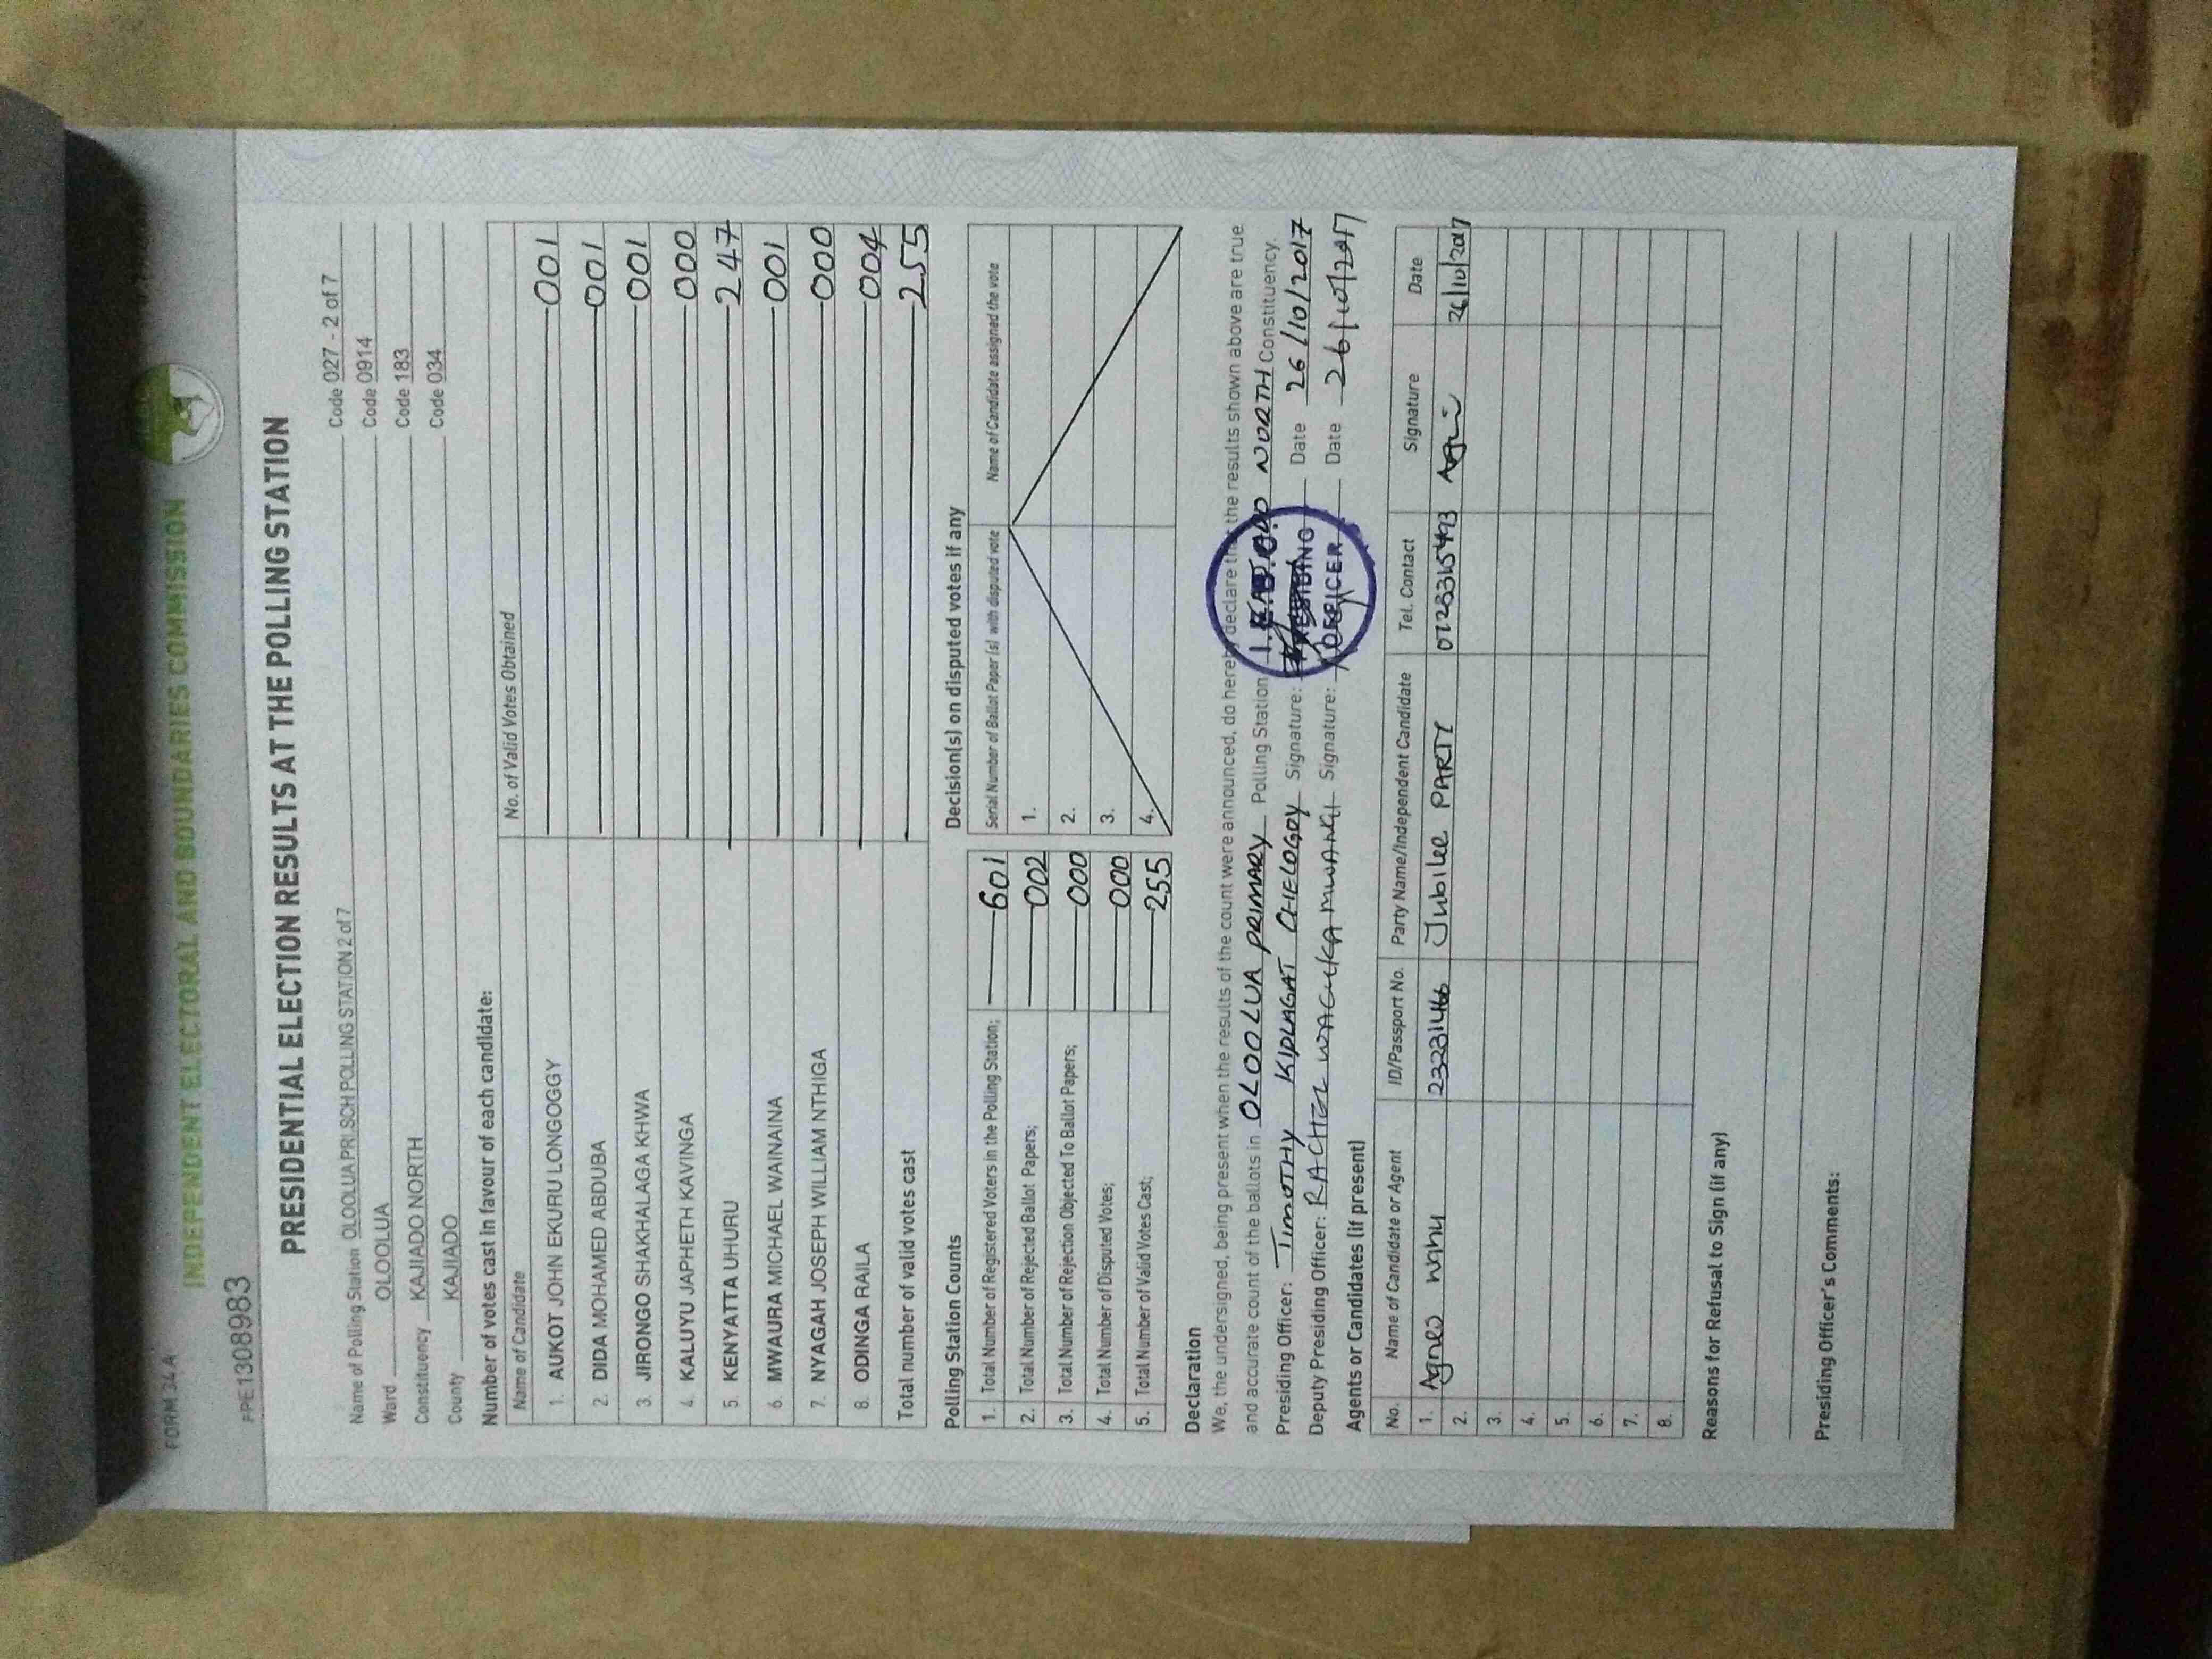 FORM 34A
INDEPENDENT ELECTORAL AND BOUNDARIES COMMISSION
PPE1308983
PRESIDENTIAL ELECTION RESULTS AT THE POLLING STATION
Name of Polling Station OLOOLUA PRI SCH POLLING STATION 2 of 7 Code 027 - 2 of 7
Ward OLOOLUA Code 0914
Constituency KAJIADO NORTH Code 183
County KAJIADO Code 034
Number of votes cast in favour of each candidate:
Name of Candidate No. of Valid Votes Obtained
1. AUKOT JOHN EKURU LONGOGGY 001
2. DIDA MOHAMED ABDUBA 001
3. JIRONGO SHAKHALAGA KHWA 001
4. KALUYU JAPHETH KAVINGA 000
5. KENYATTA UHURU 247
6. MWAURA MICHAEL WAINAINA 001
7. NYAGAH JOSEPH WILLIAM NTHIGA 000
8. ODINGA RAILA 004
Total number of valid votes cast 255
Polling Station Counts
1. Total Number of Registered Voters in the Polling Station; 601
2. Total Number of Rejected Ballot Papers; 002
3. Total Number of Rejection Objected To Ballot Papers; 000
4. Total Number of Disputed Votes; 000
5. Total Number of Valid Votes Cast; 255
Decision(s) on disputed votes if any
Serial Number of Ballot Paper (s) with disputed vote Name of Candidate assigned the vote
1.
2.
3.
4.
Declaration
We, the undersigned, being present when the results of the count were announced, do hereby declare that the results shown above are true
and accurate count of the ballots in OLOOLUA PRIMARY Polling Station NORTH Constituency.
Presiding Officer: TIMOTHY KIPLAGAT CHELOGOY Signature: Date 26/10/2017
Deputy Presiding Officer: RACHEL WACUKA MWANGI Signature: Date 26/10/2017
PRESIDING
OFFICER
Agents or Candidates (if present)
No. Name of Candidate or Agent ID/Passport No. Party Name/Independent Candidate Tel. Contact Signature Date
1. Agnes 23231466 Jubilee PARTY 26/10/2017
2.
3.
4.
5.
6.
7.
8.
Reasons for Refusal to Sign (if any)
Presiding Officer's Comments: